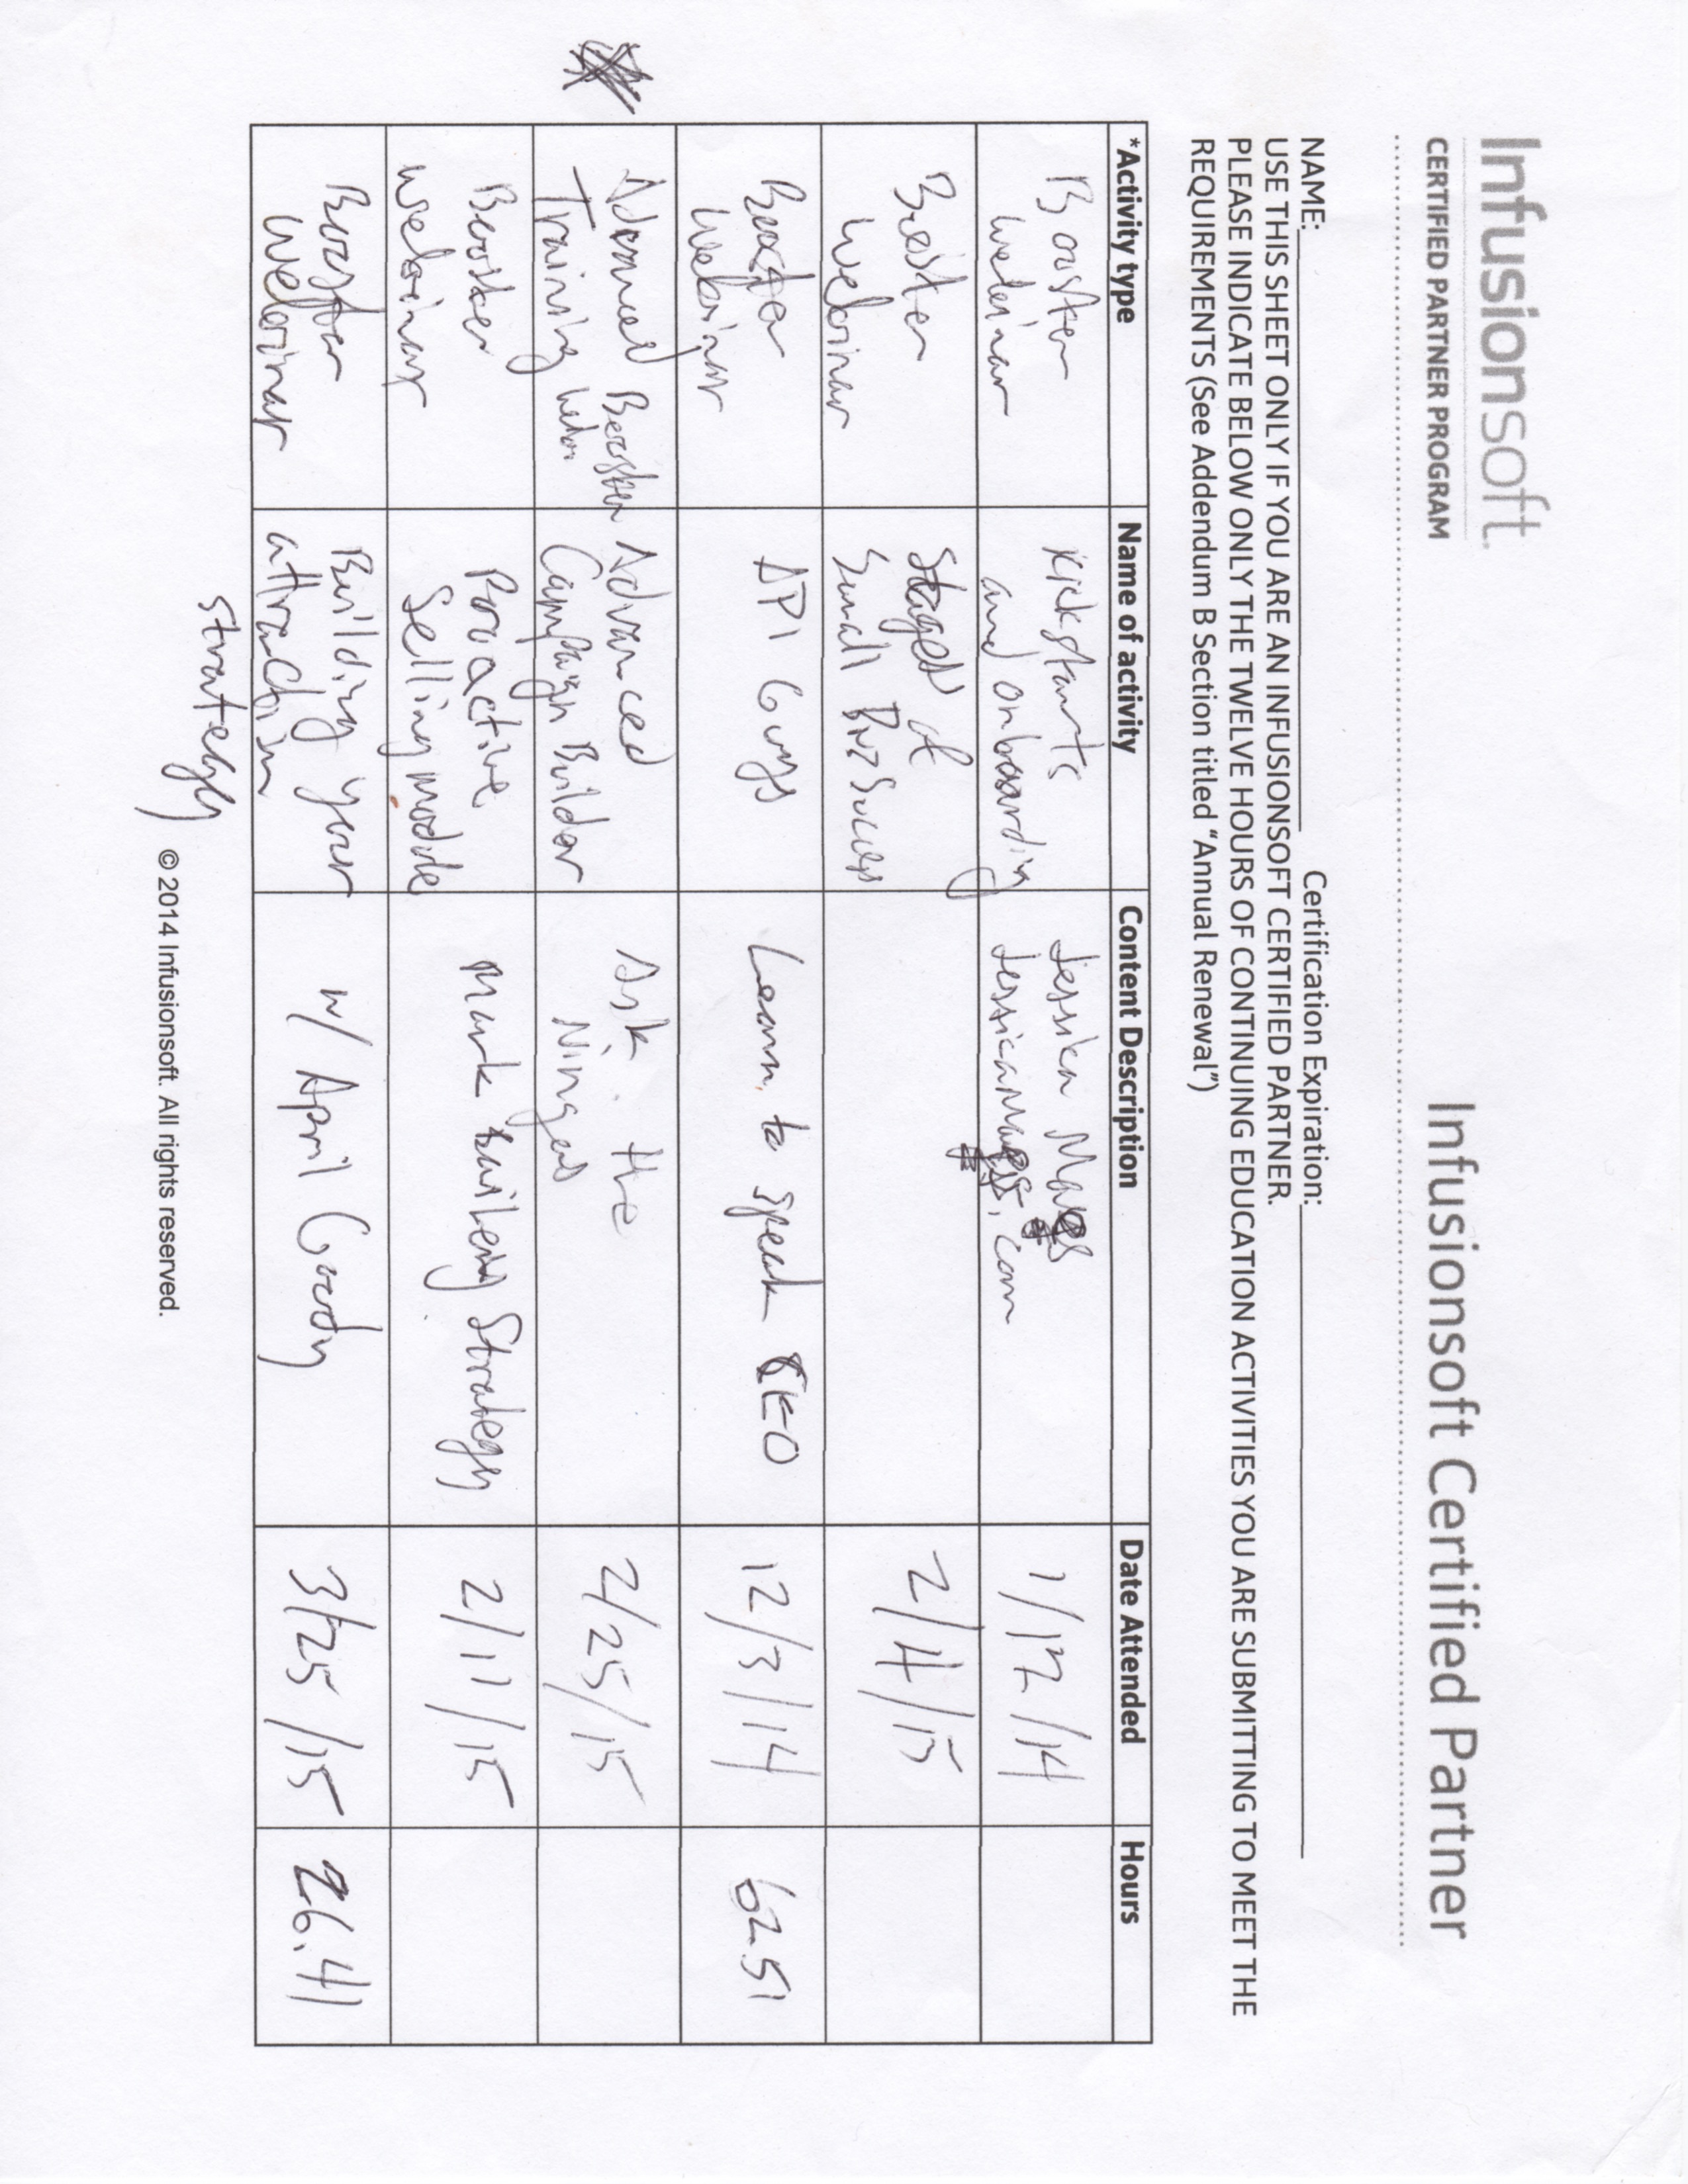 Infusionsoft.
CERTIFIED PARTNER PROGRAM
Infusionsoft Certified Partner
NAME: Certification Expiration:
USE THIS SHEET ONLY IF YOU ARE AN INFUSIONSOFT CERTIFIED PARTNER.
PLEASE INDICATE BELOW ONLY THE TWELVE HOURS OF CONTINUING EDUCATION ACTIVITIES YOU ARE SUBMITTING TO MEET THE
REQUIREMENTS (See Addendum B Section titled "Annual Renewal")
*Activity type Name of activity Content Description Date Attended Hours
Booster
Webinar
Kickstarts
and onboarding
Jessica
1/12/14
Booster
Webinar
Stages of
Small Biz Success
2/4/15
Booster
Webinar
API Guys
Learn to speak
12/3/14
62.51
Advanced Booster
Training
Advanced
Campaign Builder
Ask the
Ninjas
2/25/15
Booster
Webinar
Proactive
Selling mode
Mark Strategy
2/11/15
Booster
Webinar
Building your
attraction
strategy
w/ April Goody
3/25/15
26.41
© 2014 Infusionsoft. All rights reserved.